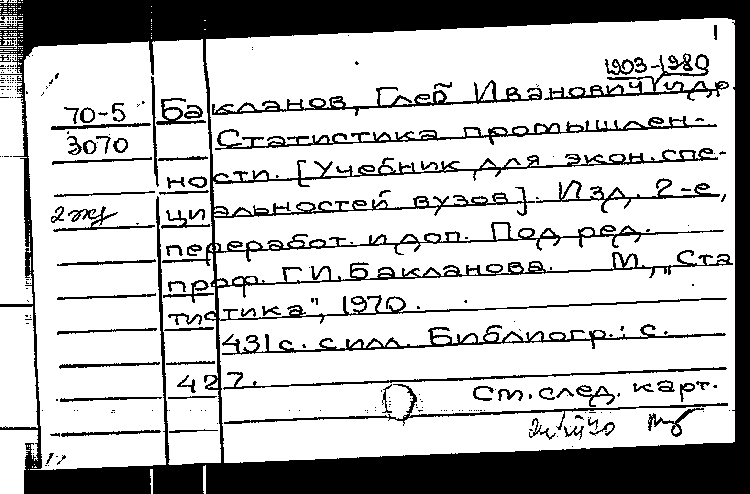 1
1903-1980
70-5 Бакланов, Глеб Иванович и др.
3070 Статистика промышлен-
ности. [Учебник для экон. спе-
2 экз циальностей вузов]. Изд. 2-е,
переработ. и доп. Под ред.
проф. Г.И. Бакланова. М., „Ста
тистика", 1970.
431 с. с илл. Библиогр.: с.
427.
см. след. карт.